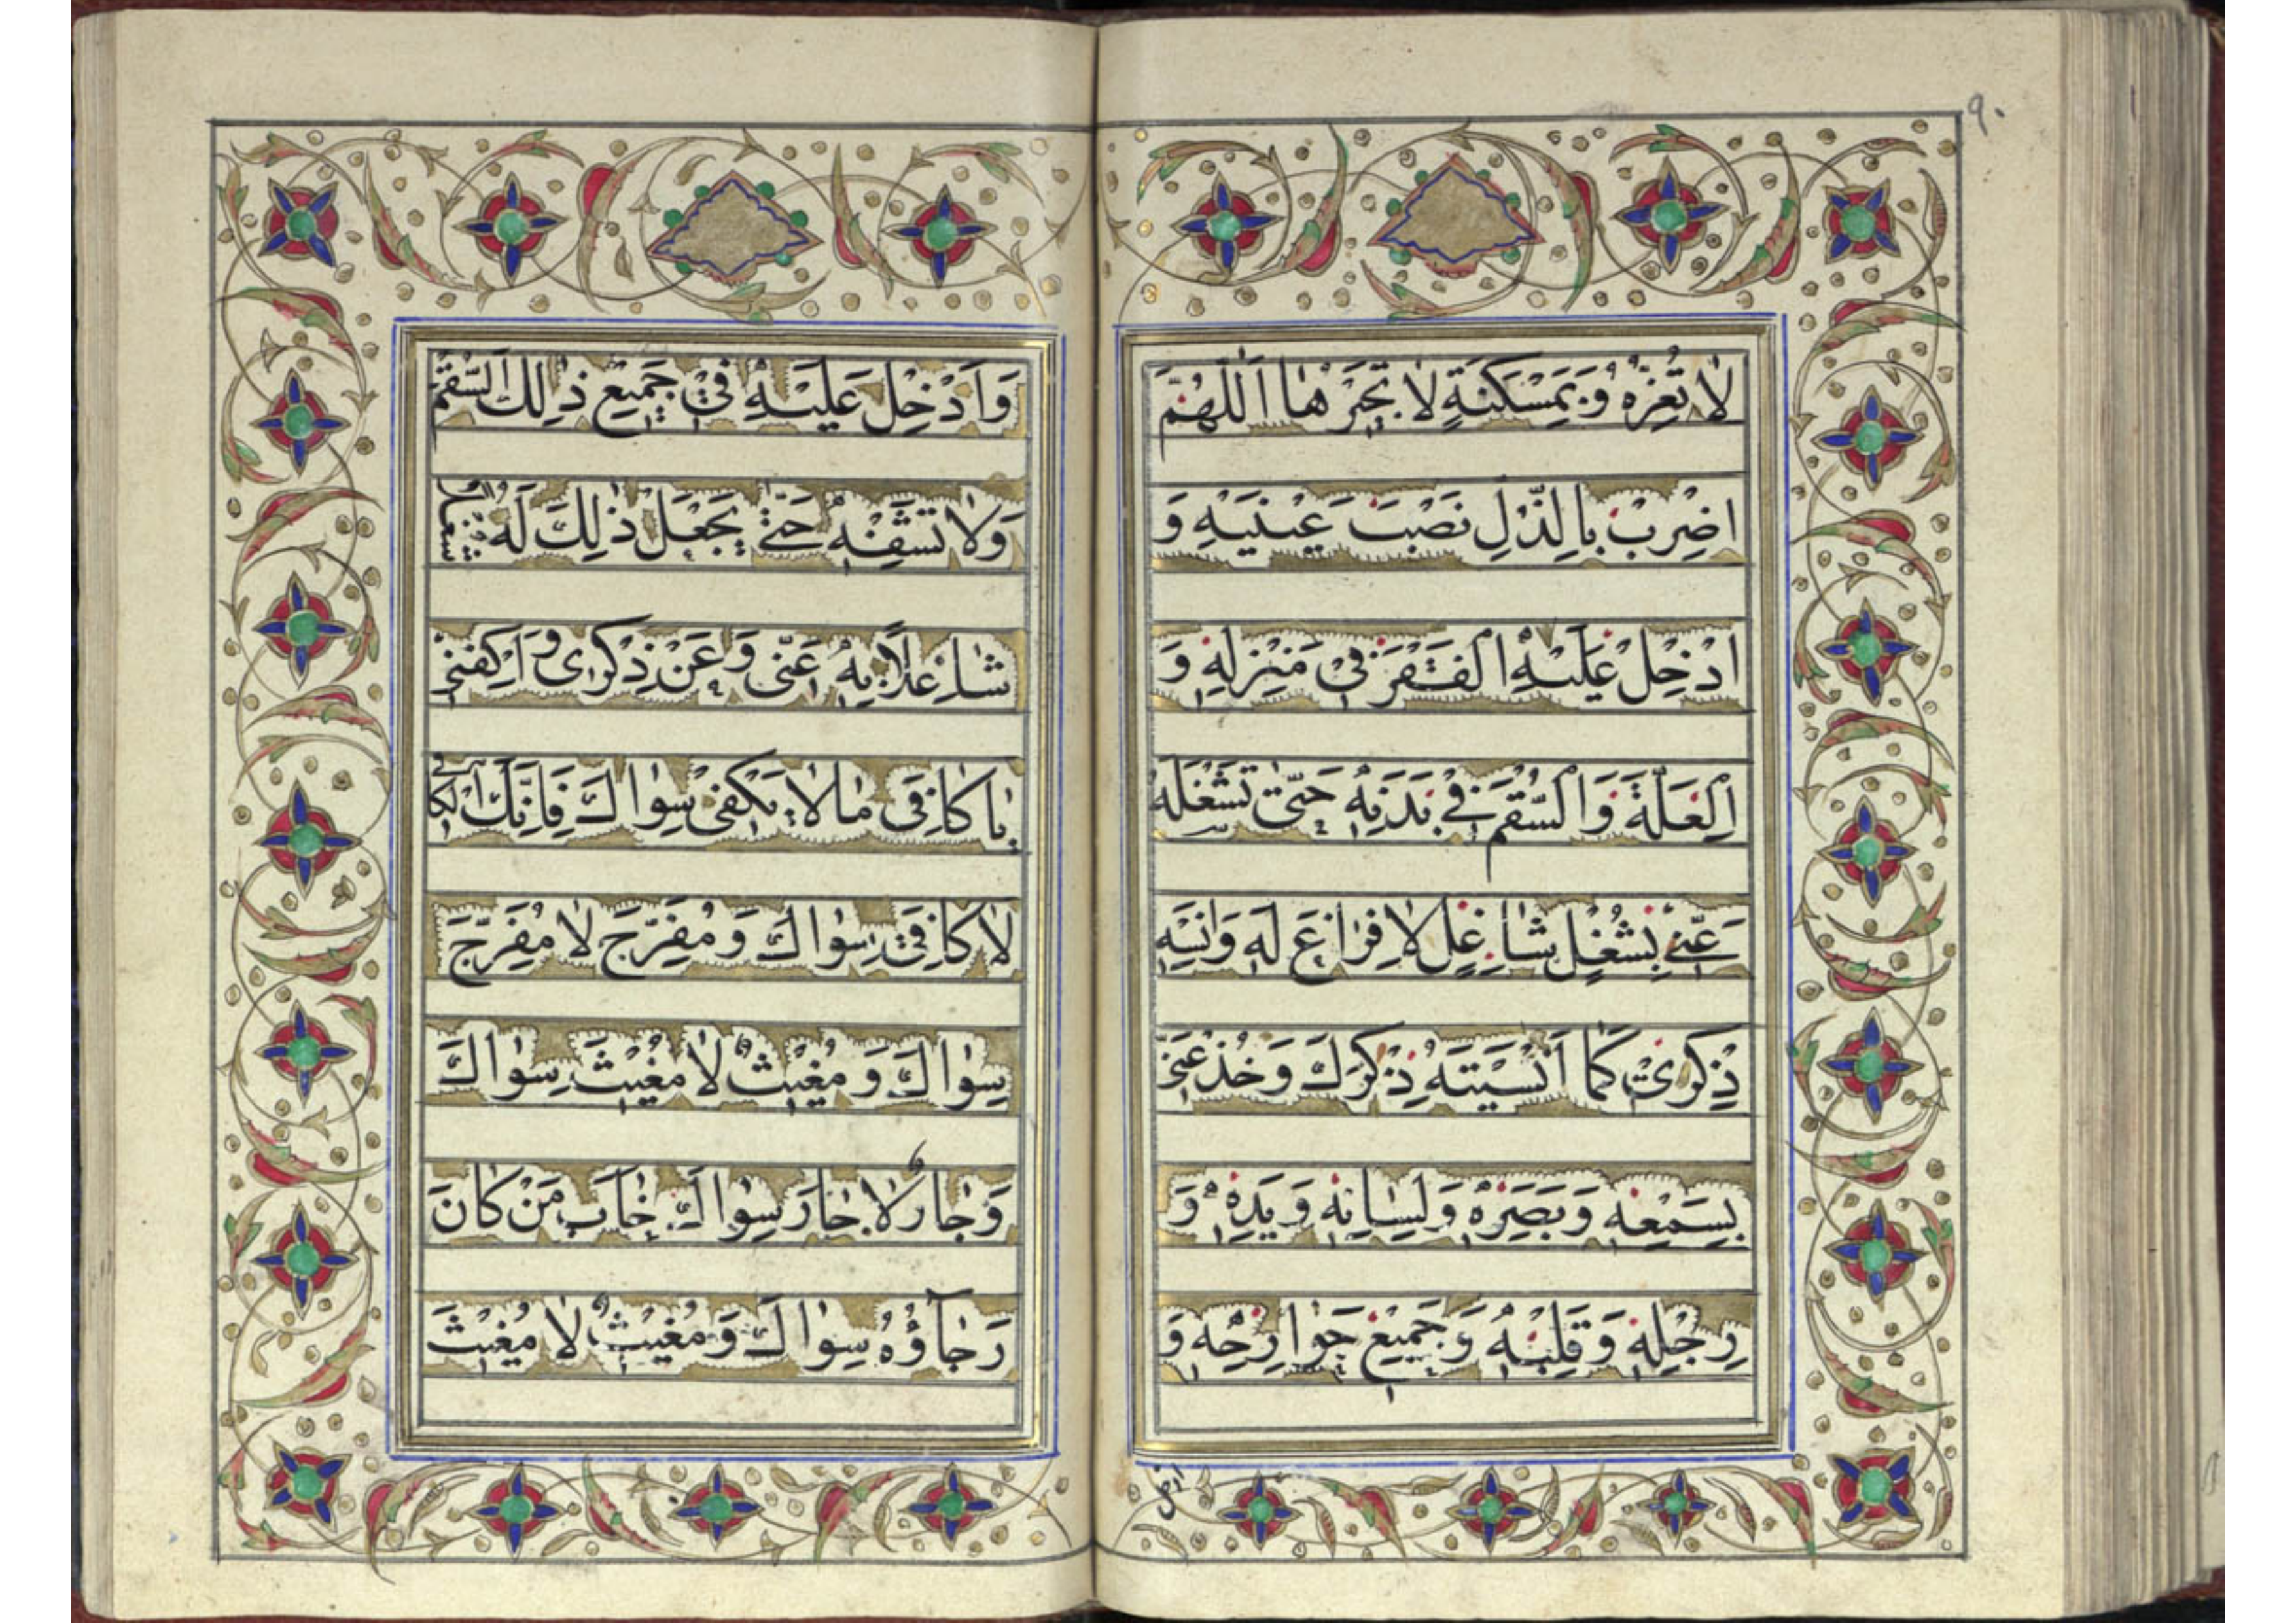 ٩٠
لا تُعِزُّهُ وَبِمَسْكَنَةٍ لا تَجْبُرُها اَللّٰهُمَّ
اضْرِبْ بِالذُّلِّ نَصْبَ عَيْنَيْهِ وَ
اَدْخِلْ عَلَيْهِ الْفَقْرَ فى مَنْزِلِهِ وَ
الْعِلَّةَ وَالسُّقْمَ فى بَدَنِهِ حَتّى تَشْغَلَهُ
عَنّى بِشُغْلٍ شاغِلٍ لا فَراغَ لَهُ وَاَنْسِهِ
ذِكْرى كَما اَنْسَيْتَهُ ذِكْرَكَ وَخُذْ عَنّى
بِسَمْعِهِ وَبَصَرِهِ وَلِسانِهِ وَيَدِهِ وَ
رِجْلِهِ وَقَلْبِهِ وَجَميعِ جَوارِحِهِ وَ
وادخل
وَاَدْخِلْ عَلَيْهِ فى جَميعِ ذٰلِكَ السُّقْمَ
وَلا تَشْفِهِ حَتّى تَجْعَلَ ذٰلِكَ لَهُ شُغْلاً
شاغِلاً بِهِ عَنّى وَعَنْ ذِكْرى وَاكْفِنى
يا كافِىَ ما لا يَكْفى سِواكَ فَاِنَّكَ الْكافى
لا كافِىَ سِواكَ وَمُفَرِّجٌ لا مُفَرِّجَ
سِواكَ وَمُغيثٌ لا مُغيثَ سِواكَ
وَجارٌ لا جارَ سِواكَ خابَ مَنْ كانَ
رَجاؤُهُ سِواكَ وَمُغيثٌ لا مُغيثَ